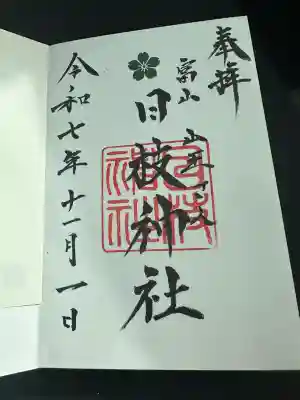 奉拝
富山
山王さん
日枝神社
日枝神社
令和七年十一月一日